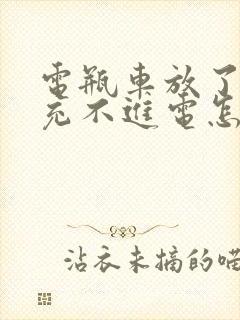 電瓶車放了
充不進電怎
沾衣未摘的喵